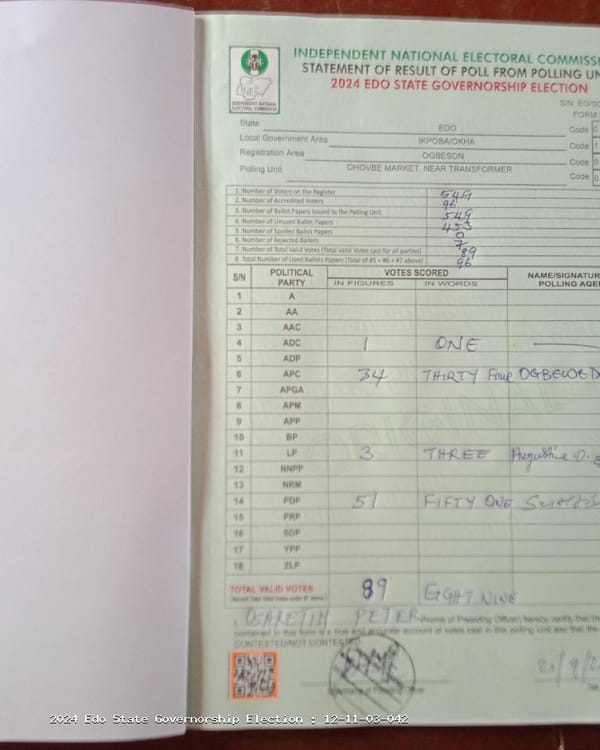 INDEPENDENT NATIONAL ELECTORAL COMMISS
STATEMENT OF RESULT OF POLL FROM POLLING UN
2024 EDO STATE GOVERNORSHIP ELECTION
INDEPENDENT NATIONAL ELECTORAL COMMISSION
S/N: EG/
FORM
State EDO Code 0
Local Government Area IKPOBA/OKHA Code 1
Registration Area OGBESON Code 0
Polling Unit OHOVBE MARKET, NEAR TRANSFORMER Code 0
1. Number of Voters on the Register 549
2. Number of Accredited Voters 96
3. Number of Ballot Papers Issued to the Polling Unit 549
4. Number of Unused Ballot Papers 453
5. Number of Spoiled Ballot Papers 0
6. Number of Rejected Ballots 7
7. Number of Total Valid Votes (Total Valid Votes cast for all parties) 89
8. Total Number of Used Ballot Papers (Total of #5 + #6 + #7 above) 96
S/N POLITICAL PARTY VOTES SCORED NAME/SIGNATUR POLLING AGE
IN FIGURES IN WORDS
1 A
2 AA
3 AAC
4 ADC 1 ONE
5 ADP
6 APC 34 THIRTY Four
7 APGA
8 APM
9 APP
10 BP
11 LP 3 THREE Augustine O.
12 NNPP
13 NRM
14 PDP 51 FIFTY ONE
15 PRP
16 SDP
17 YPP
18 ZLP
TOTAL VALID VOTES 89 EGHT NINE
I, PETER (Name of Presiding Officer) hereby certify that the
contained in this form is a true and accurate account of votes cast in this polling unit and that the
CONTESTED/NOT CONTESTED
2024 Edo State Governorship Election : 12-11-03-042